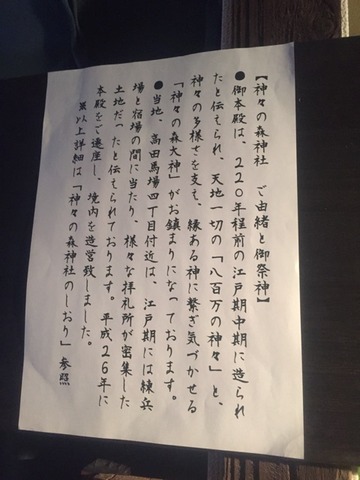 【神々の森神社　ご由緒と御祭神】
●御本殿は、220年程前の江戸期中期に造られ
たと伝えられ、天地一切の「八百万の神々」と、
神々の多様さを支え、縁ある神に繋ぎ気づかせる
「神々の森大神」がお鎮まりになっております。
●当地、高田馬場四丁目付近は、江戸期には練兵
場と宿場の間に当たり、様々な拝礼所が密集した
土地だったと伝えられております。平成26年に
本殿をご遷座し、境内を造営致しました。
※以上詳細は「神々の森神社のしおり」参照